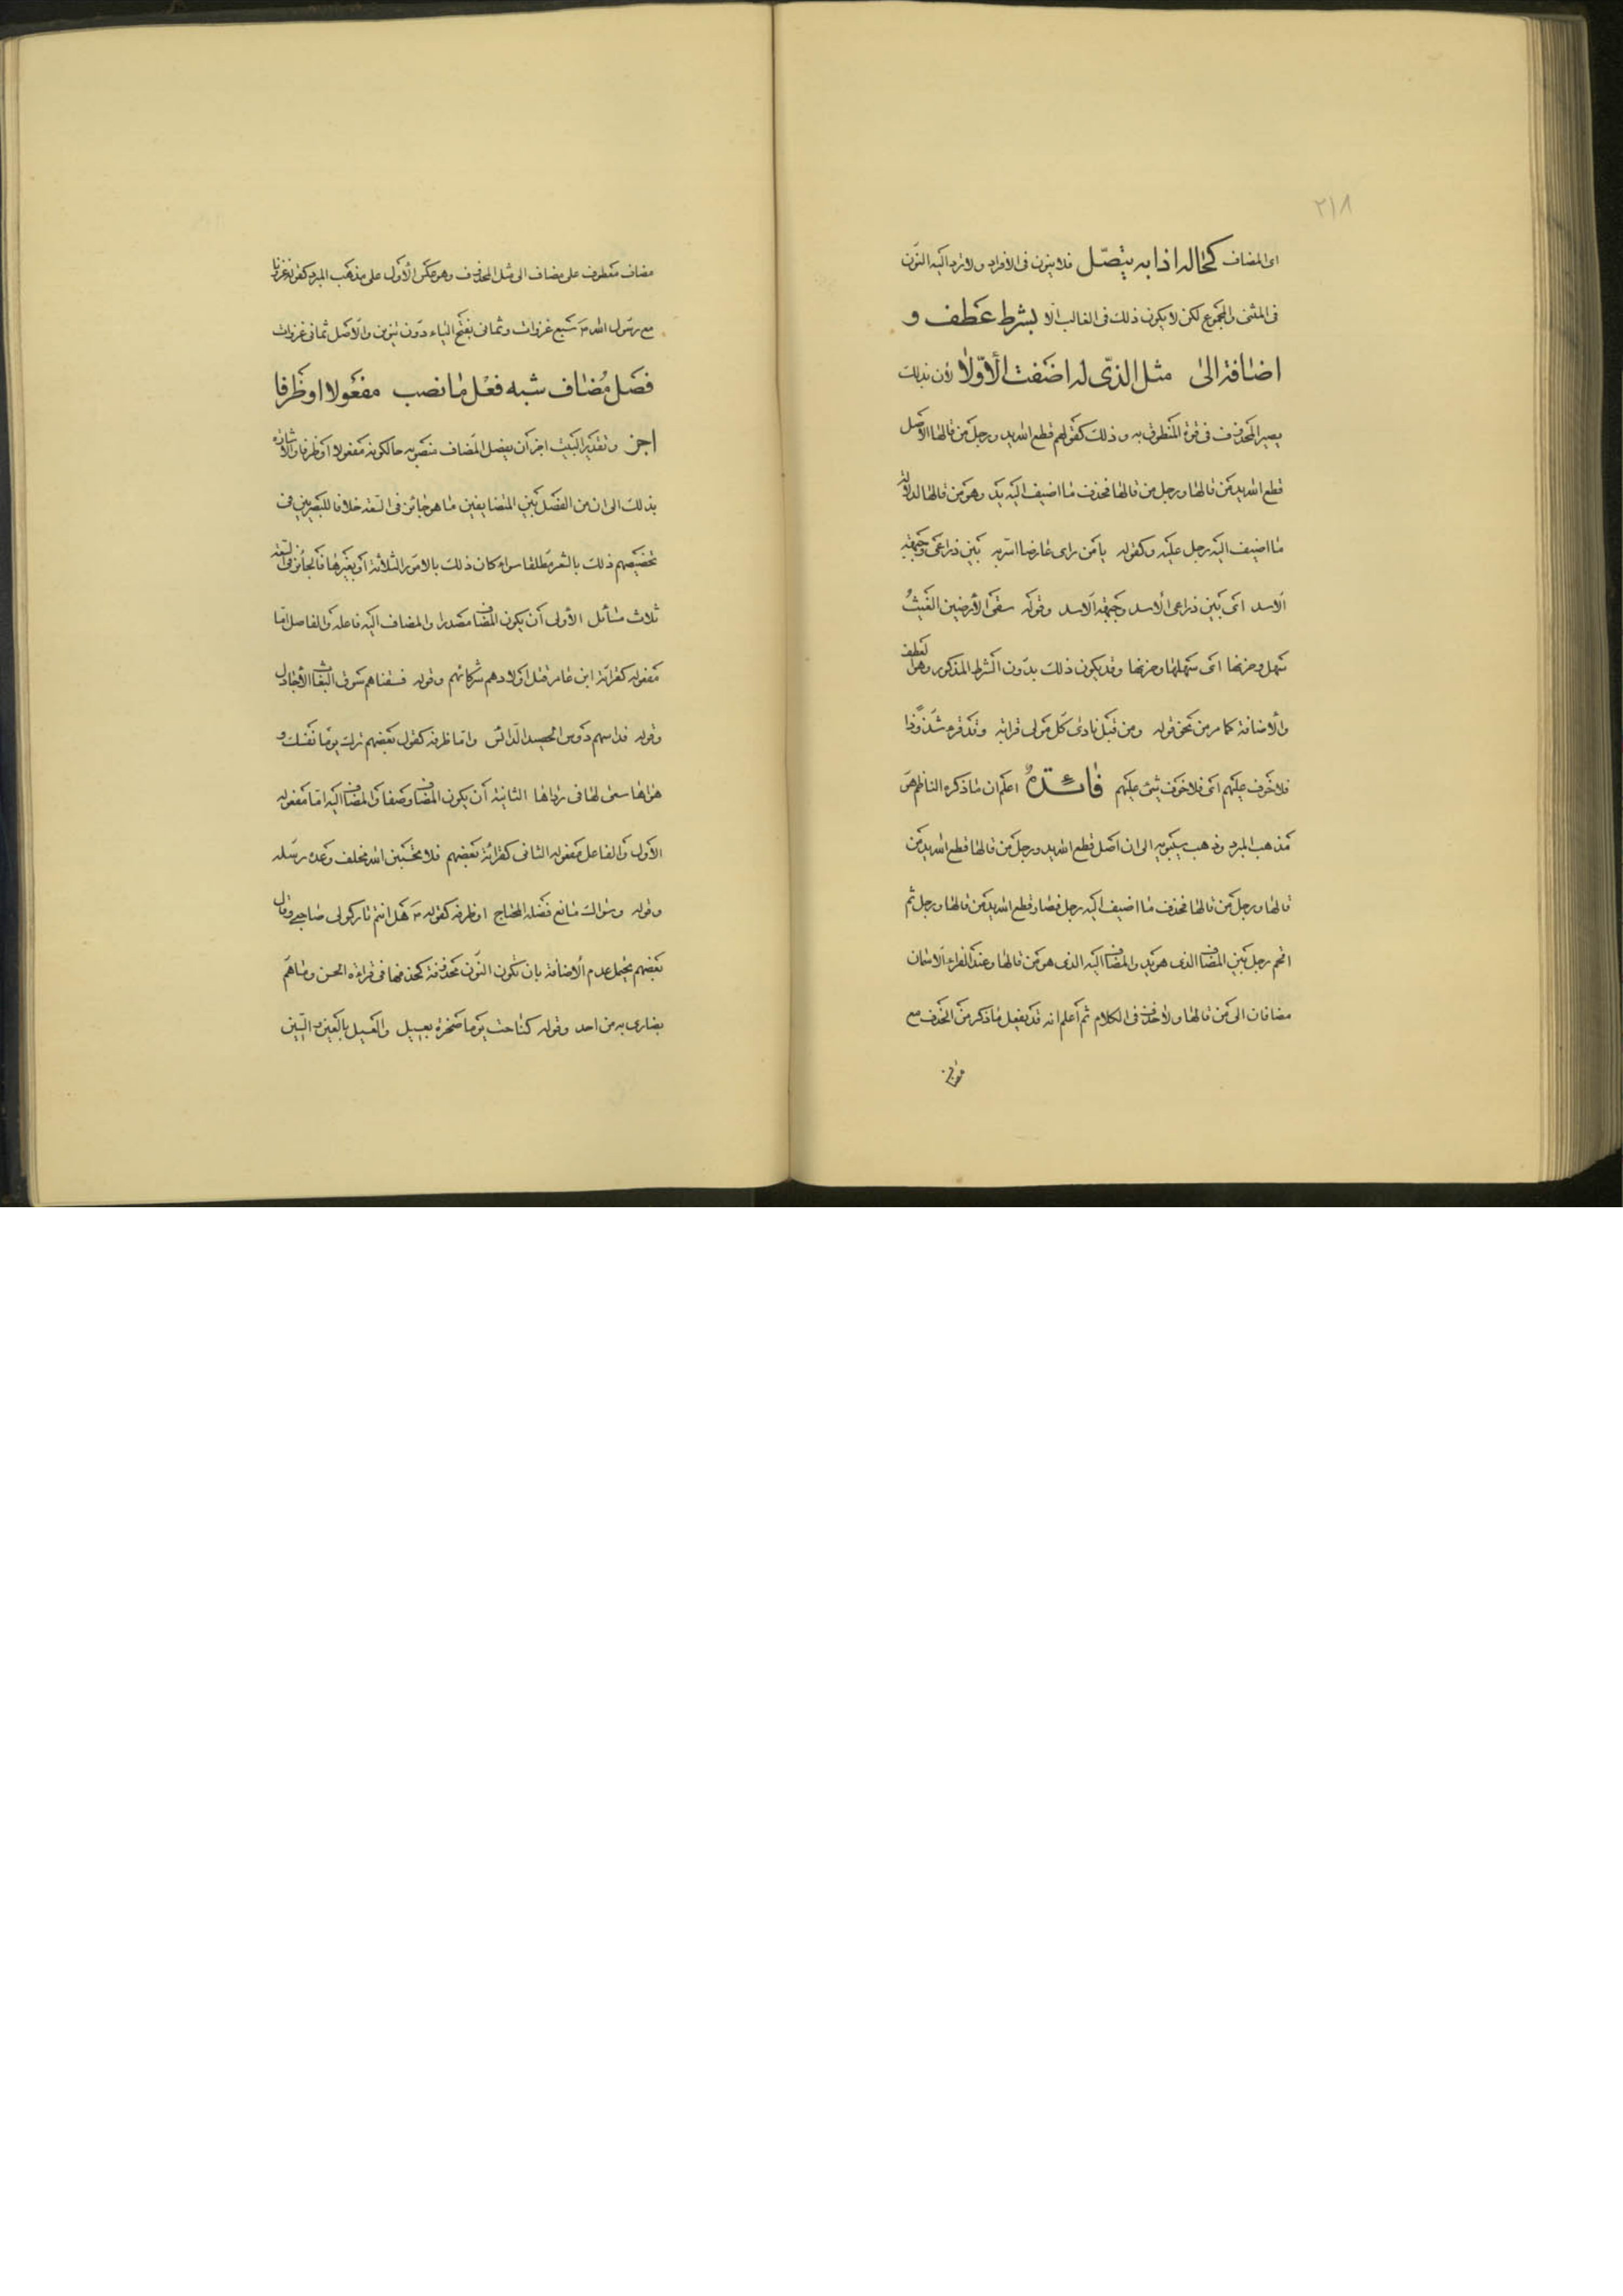 ٢١٨
اى المضاف كحاله اذا به يتصل فلا ينون فى الافراد ولا ترد اليه النون
فى المثنى والمجموع لكن لا يكون ذلك فى الغالب الا بشرط عطف و
اضافة الى مثل الذى له اضفت الاولا لان بذلك
يصير المحذوف فى قوة المنطوق به وذلك كقولهم قطع الله يد ورجل من قالها الاصل
قطع الله يد من قالها ورجل من قالها فحذف ما اضيف اليه يد وهو من قالها لدلالة
ما اضيف اليه رجل عليه وكقوله يا من راى عارضا اسر به بين ذراعى وجبهة
الاسد اى بين ذراعى الاسد وجبهة الاسد وقوله سقى الارضين الغيث
سهل وحزنها اى سهلها وحزنها وقد يكون ذلك بدون الشرط المذكور وهو العطف
والاضافة كما مر من نحو قوله ومن قبل نادى كل مولى قرابة وقد قرء شذوذا
فلا خوف عليهم اى فلا خوف شئ عليهم فائدة اعلم ان ما ذكره الناظم هو
مذهب المبرد وذهب سيبويه الى ان اصل قطع الله يد ورجل من قالها قطع الله يد من
قالها ورجل من قالها فحذف ما اضيف اليه رجل فصار قطع الله يد من قالها ورجل ثم
اقحم رجل بين المضاف الذى هو يد والمضاف اليه الذى هو من قالها وعند الفراء الاسمان
مضافان الى من قالها ولا حذف فى الكلام ثم اعلم انه قد يفعل ما ذكر من الحذف مع
مضاف معطوف على مضاف الى مثل المحذوف وهو عكس الاول على مذهب المبرد كقوله غزونا
مع رسول الله ص سبع غزوات وثمانى بفتح الياء دون تنوين والاصل ثمانى غزوات
فصل مضاف شبه فعل ما نصب مفعولا او ظرفا
اجز وتقدير البيت اجز ان يفصل المضاف منصوبه حالكونه مفعولا او ظرفا والاشارة
بذلك الى ان من الفصل بين المتضايفين ما هو جائز فى السعة خلافا للبصريين فى
تخصيصهم ذلك بالشعر مطلقا سواء كان ذلك بالامور الثلاثة او بغيرها فالجائز فى السعة
ثلاث مسائل الاولى ان يكون المضاف مصدرا والمضاف اليه فاعله والفاصل اما
مفعوله كقرائة ابن عامر قتل اولادهم شركائهم وقوله فسقناهم سوق البغاث الاجادل
وقوله فداسهم دوس الحصيد الدائس واما ظرفه كقول بعضهم ترك يوما نفسك و
هواها سعى لها فى رداها الثانية ان يكون المضاف وصفا والمضاف اليه اما مفعوله
الاول والفاعل مفعوله الثانى كقرائة بعضهم فلا تحسبن الله مخلف وعده رسله
وقوله وسواك مانع فضله المحتاج او ظرفه كقوله ص هل انتم تاركو لى صاحبى وقال
بعضهم يحتمل عدم الاضافة بان تكون النون محذوفة كحذفها فى قراءة الحسن وما هم
بضارى به من احد وقوله كناحت يوما صخرة بعسيل والعسيل بالعين والسين